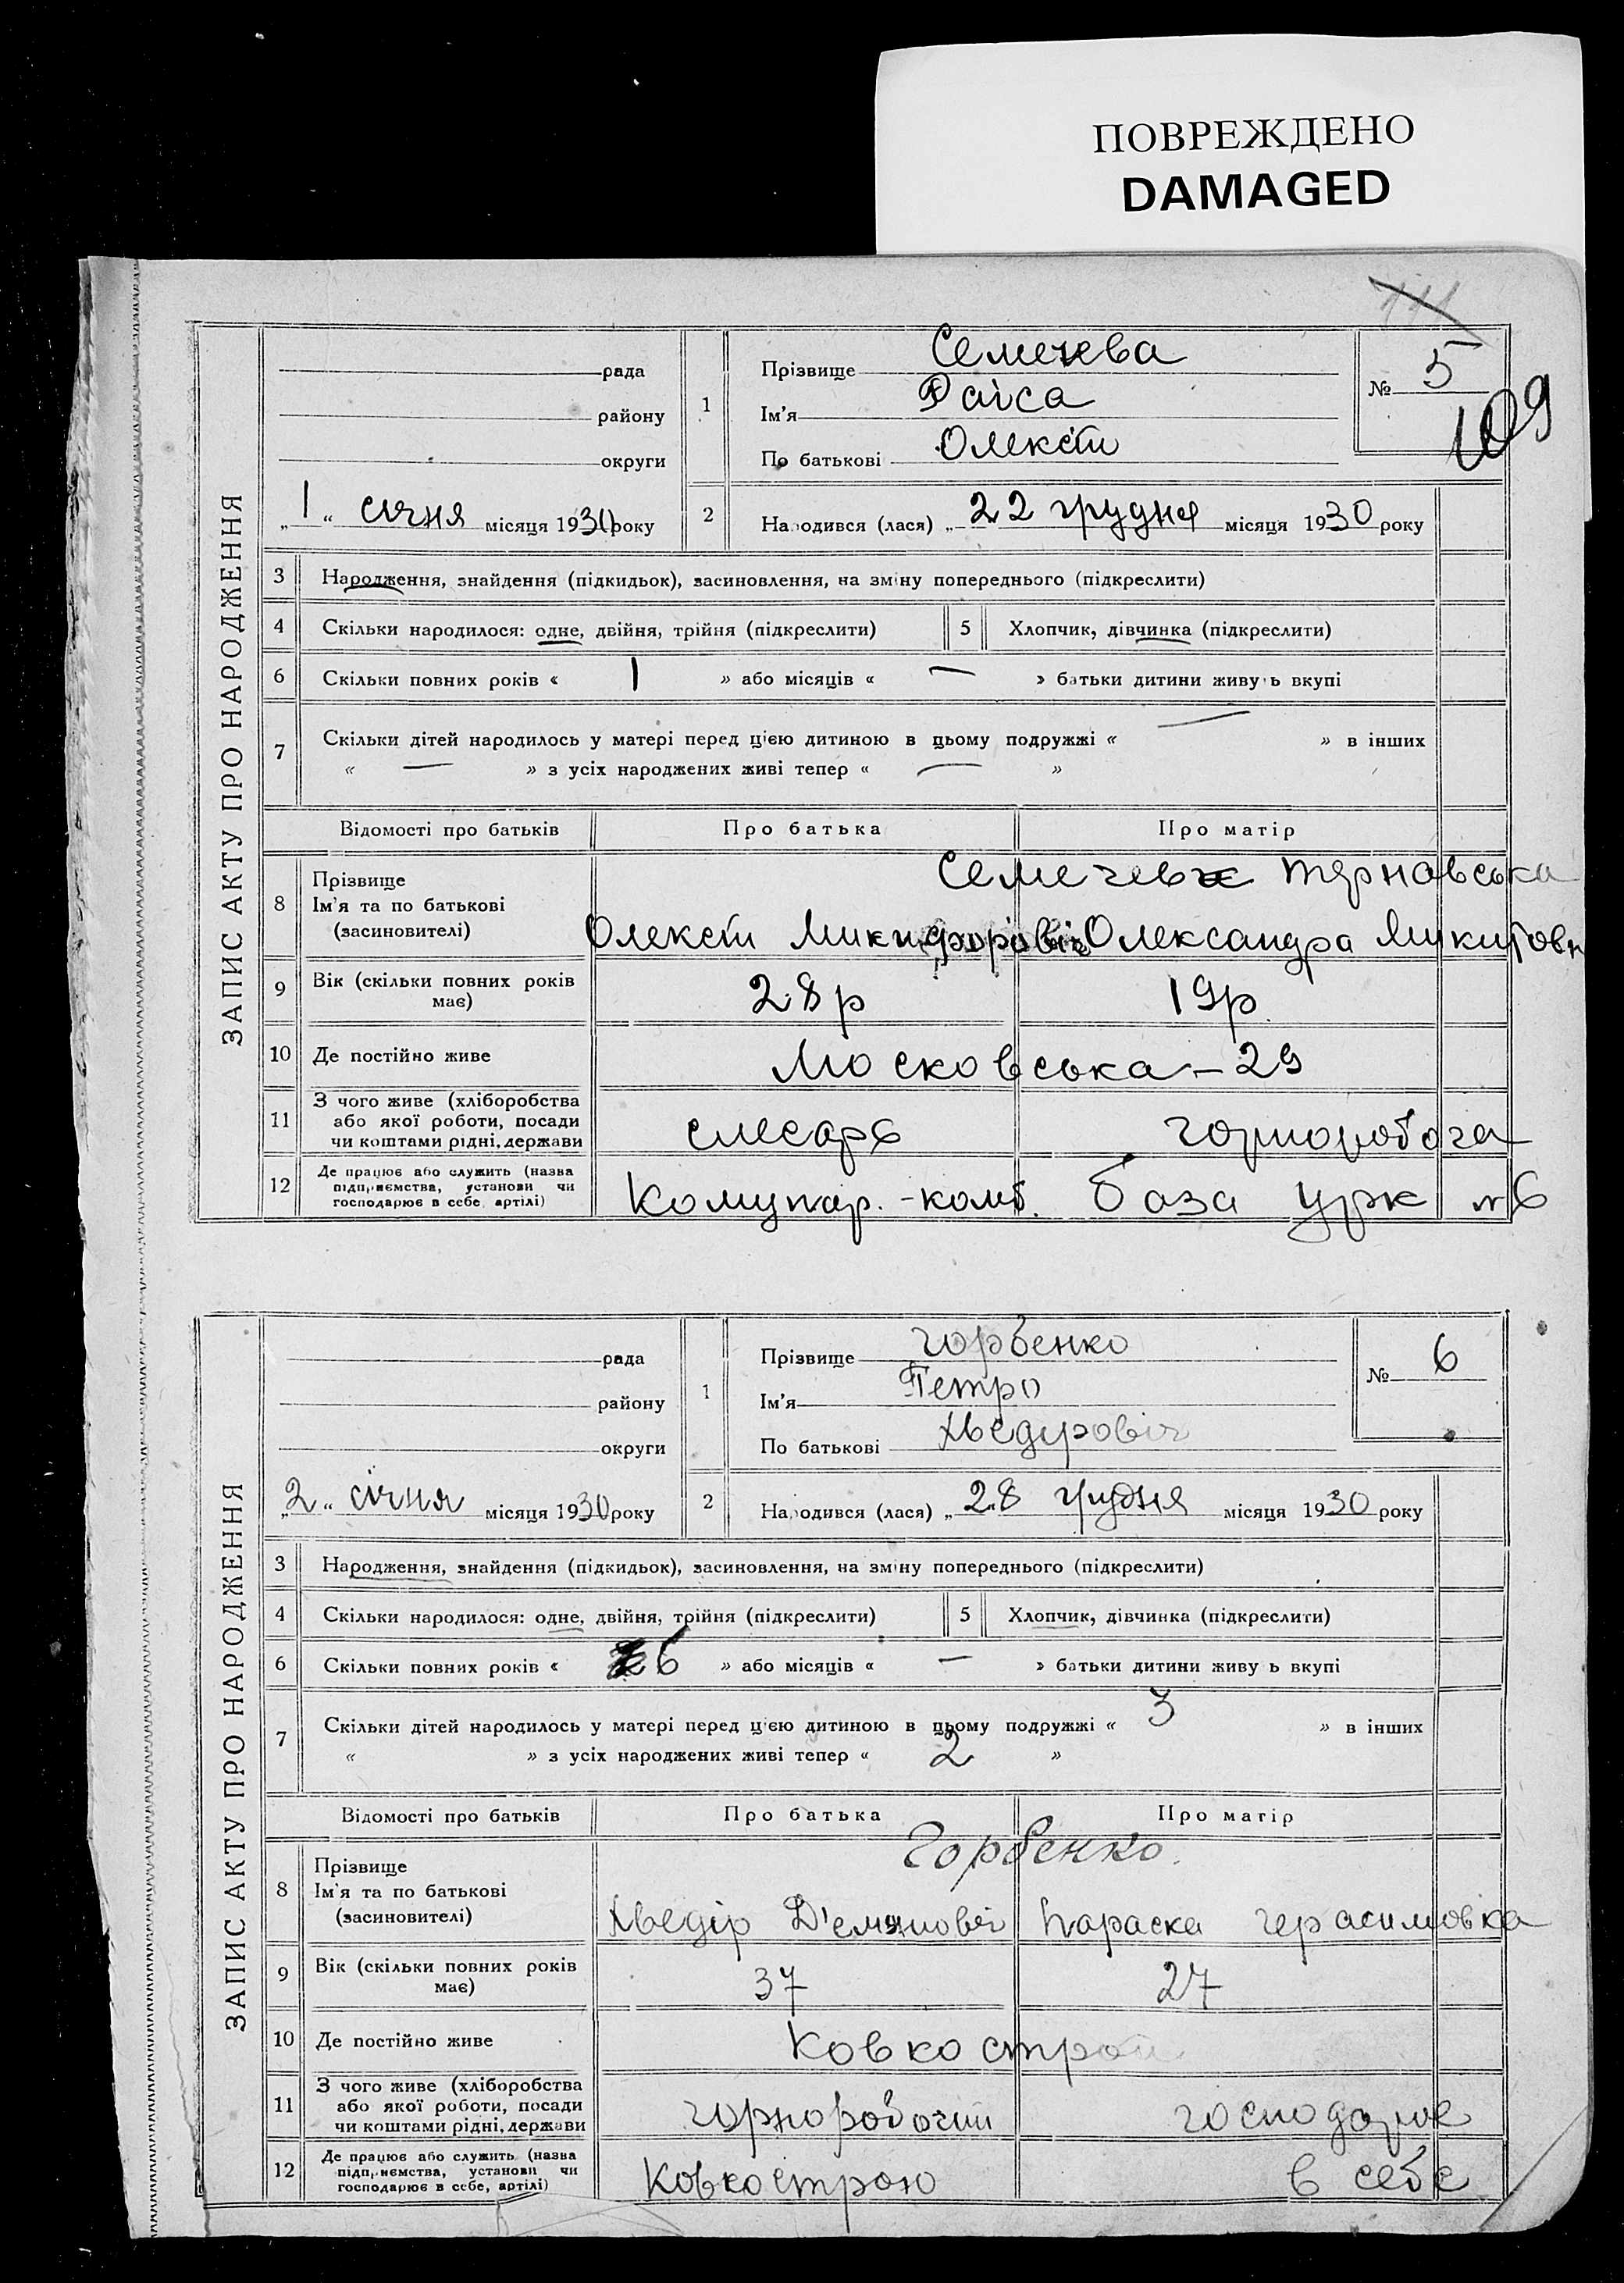 ПОВРЕЖДЕНО
DAMAGED
ЗАПИС АКТУ ПРО НАРОДЖЕННЯ
рада
району
округи
„1“ січня місяця 1931 року
1
Прізвище Семечева
Ім'я Раіса
По батькові Олексіи
№ 5
109
2
Народився (лася) „22 грудня місяця 1930 року
3 Народження, знайдення (підкидьок), засиновлення, на зміну попереднього (підкреслити)
4 Скільки народилося: одне, двійня, трійня (підкреслити)
5 Хлопчик, дівчинка (підкреслити)
6 Скільки повних років « 1 » або місяців « — » батьки дитини живуть вкупі
7 Скільки дітей народилось у матері перед цією дитиною в цьому подружжі « — » в інших
« — » з усіх народжених живі тепер « — »
Відомості про батьків Про батька Про матір
8 Прізвище
Ім'я та по батькові
(засновителі)
Тярновська
Олексіи Микифоровіч Олександра Микитовн
9 Вік (скільки повних років має) 28р 19р
10 Де постійно живе Московська – 29
11 З чого живе (хліборобства
або якої роботи, посади
чи коштами рідні, держави
слесарь чорноробоча
12 Де працює або служить (назва
підприємства, установи чи
господарює в себе, артілі)
комб. база урк №6
ЗАПИС АКТУ ПРО НАРОДЖЕННЯ
рада
району
округи
„2“ січня місяця 1930 року
1
Прізвище Горбенко
Ім'я Петро
По батькові Хведіровіч
№ 6
2
Народився (лася) „28 грудня місяця 1930 року
3 Народження, знайдення (підкидьок), засиновлення, на зміну попереднього (підкреслити)
4 Скільки народилося: одне, двійня, трійня (підкреслити)
5 Хлопчик, дівчинка (підкреслити)
6 Скільки повних років « 6 » або місяців « — » батьки дитини живу ь вкупі
7 Скільки дітей народилось у матері перед цією дитиною в цьому подружжі « 3 » в інших
« » з усіх народжених живі тепер « 2 »
Відомості про батьків Про батька Про матір
8 Прізвище
Ім'я та по батькові
(засиновителі)
Горбенко
Хведір Д'емянович Параска Герасимовка
9 Вік (скільки повних років має) 37 27
10 Де постійно живе Ковкострой
11 З чого живе (хліборобства
або якої роботи, посади
чи коштами рідні, держави
чорноробочий господарює
12 Де працює або служить (назва
підприємства, установи чи
господарює в себе, артілі)
Ковкострою в себе